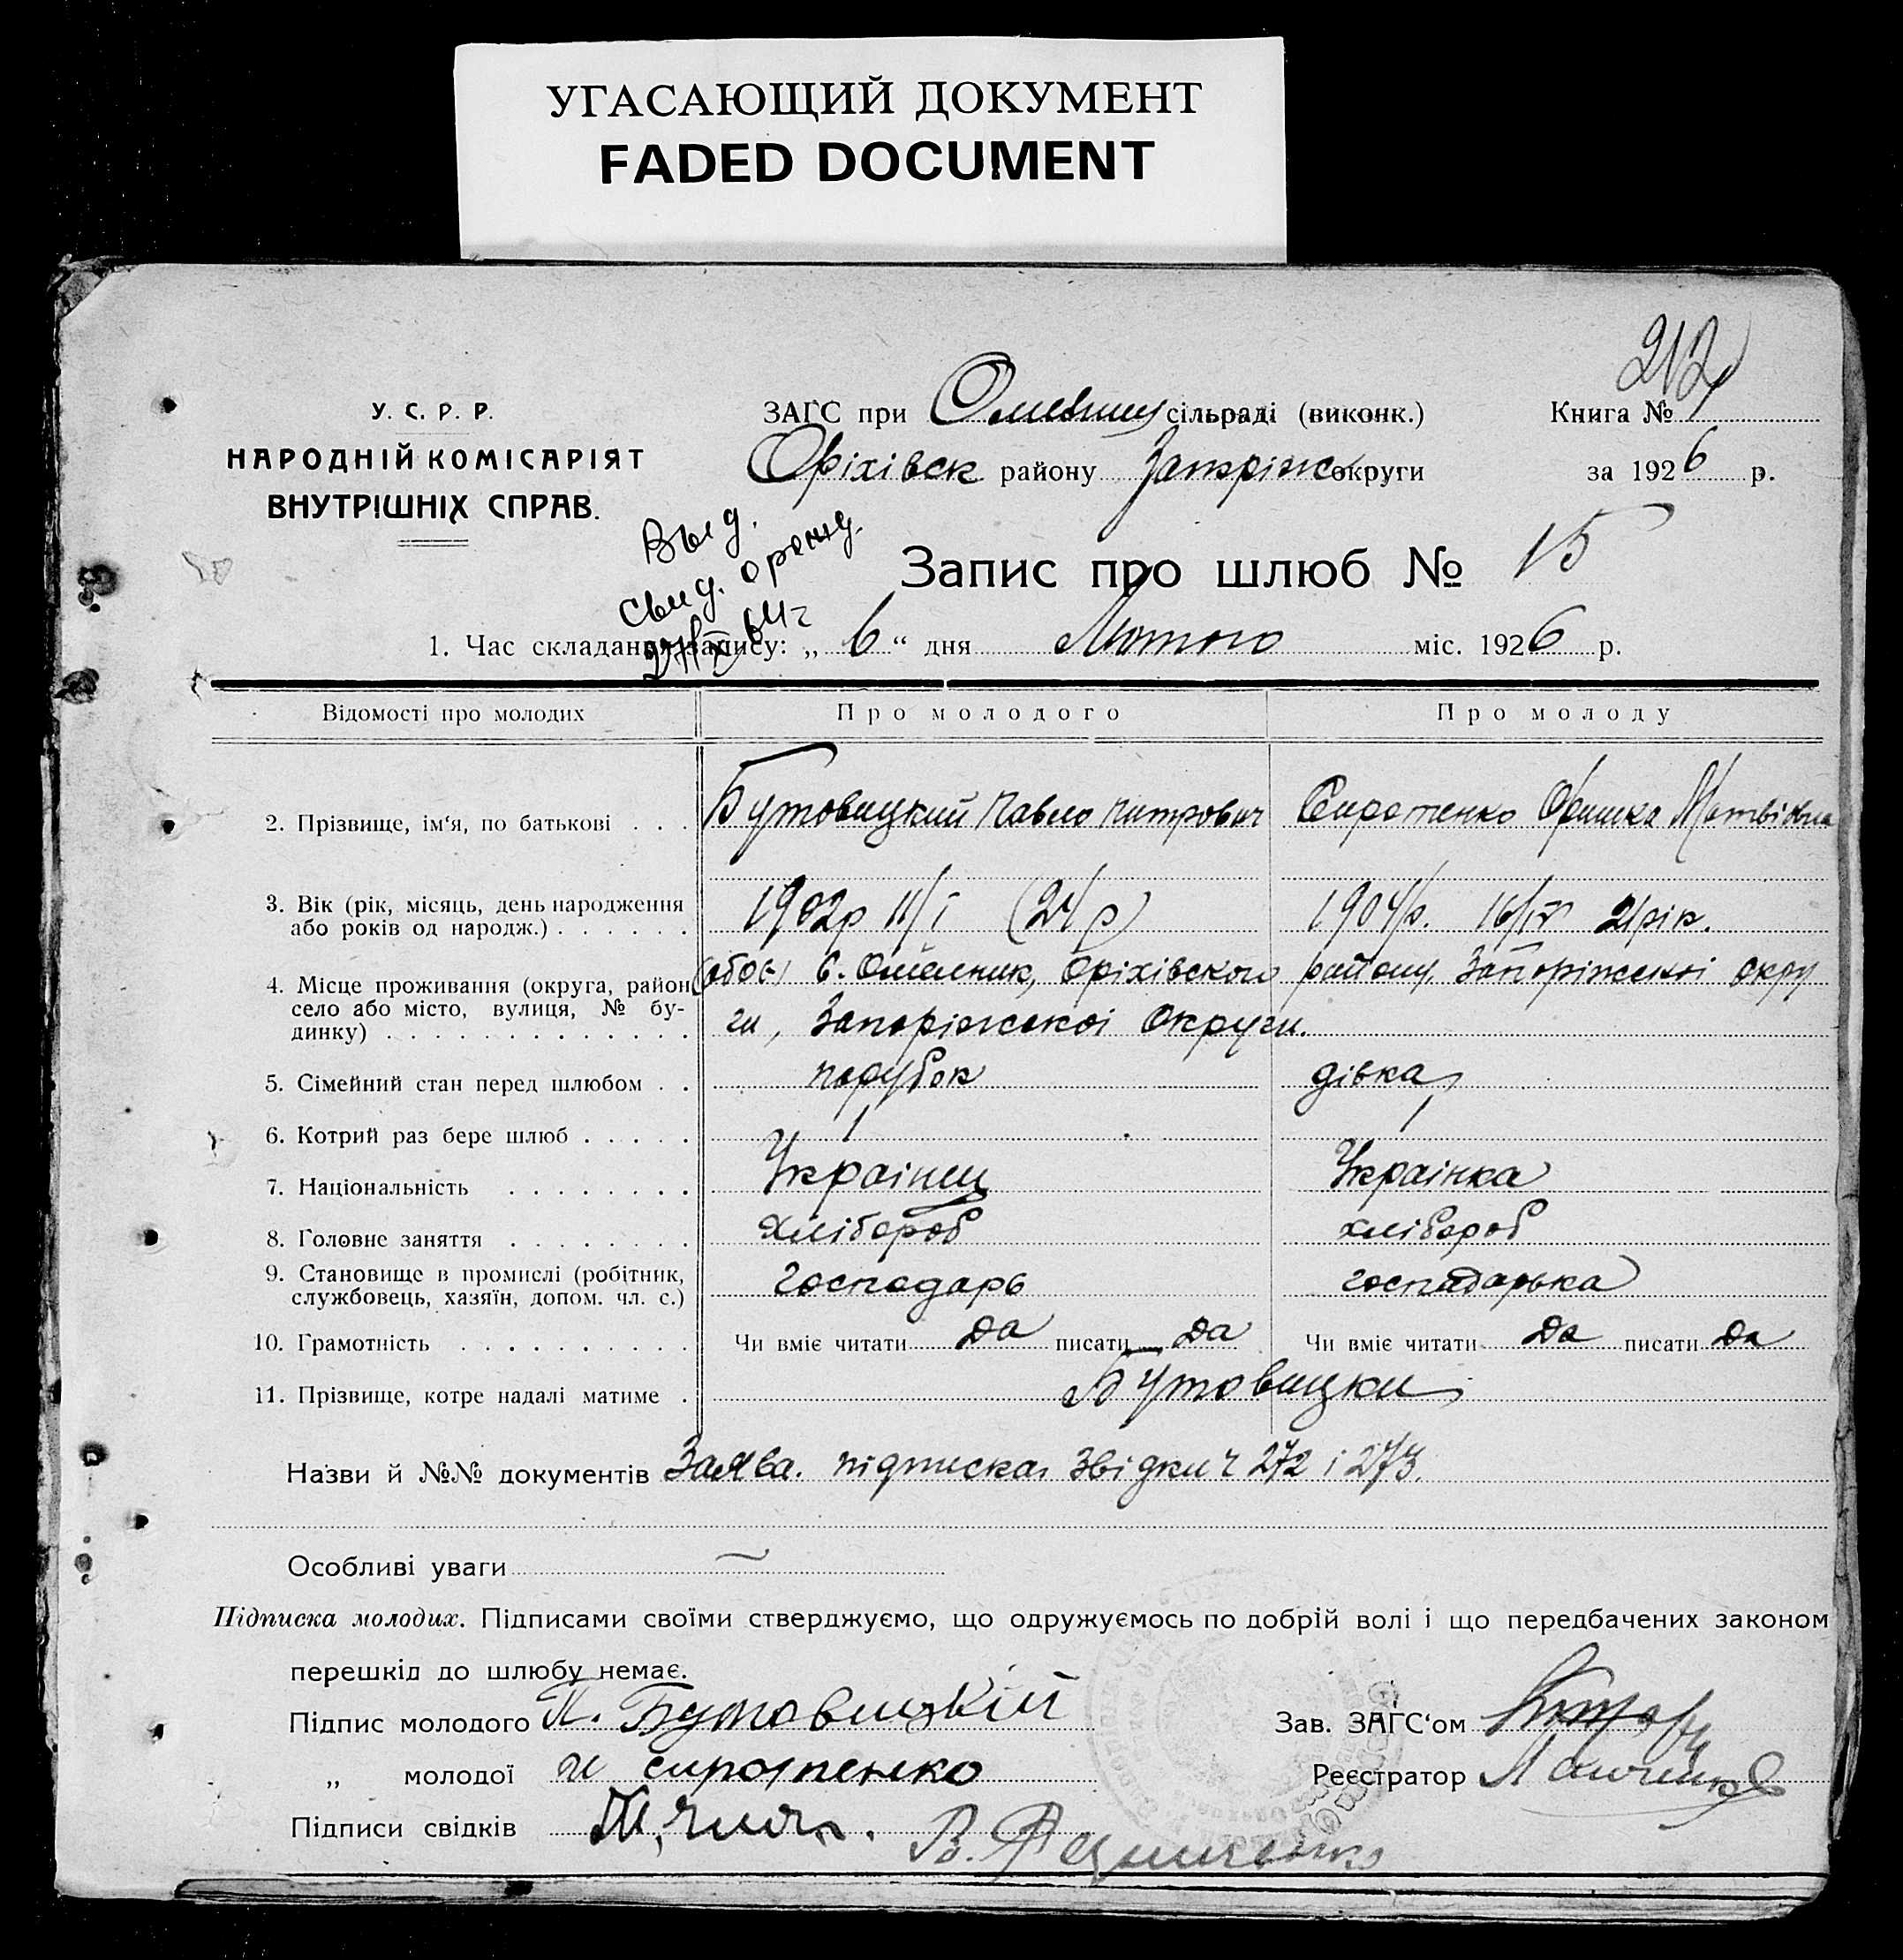 УГАСАЮЩИЙ ДОКУМЕНТ
FADED DOCUMENT
212
У. С. Р. Р.
НАРОДНІЙ КОМІСАРІЯТ
ВНУТРІШНІХ СПРАВ.
ЗАГС при сільраді (виконк.) Книга №
Оріхівск району Запоріж округи за 1926 р.
Выд.
свид.
Запис про шлюб № 15
1. Час складання запису: „ 6 “ дня Лютого міс. 1926 р.
Відомості про молодих Про молодого Про молоду
2. Прізвище, ім‘я, по батькові . . . Бутовицкий Павло Питрович Сиротенко Оришка Матвіовна
3. Вік (рік, місяць, день народження
або років од народж.) . . . . . . 1902р 11/I (24/р) 1904/р. 16/IV 21рік.
4. Місце проживання (округа, район (обоє) с. Омельник, Оріхівского району, Запоріжської окру
село або місто, вулиця, № бу-
динку) . . . . . . . . . . . . . ги, Запоріжської Округи.
5. Сімейний стан перед шлюбом . . парубок дівка
6. Котрий раз бере шлюб . . . . . 1 1
7. Національність . . . . . . . . Українец Українка
8. Головне заняття . . . . . . . . хлібороб хлібороб
9. Становище в промислі (робітник,
службовець, хазяїн, допом. чл. с.) господарь господарька
10. Грамотність . . . . . . . . . . Чи вміє читати да писати да Чи вміє читати да писати да
11. Прізвище, котре надалі матиме . Бутовицки
Назви й №№ документів Заява. підписка, звідки ч 272 і 273.
Особливі уваги
Підписка молодих. Підписами своїми стверджуємо, що одружуємось по добрій волі і що передбачених законом
перешкід до шлюбу немає.
Підпис молодого П. Бутовицкій Зав. ЗАГС‘ом
„ молодої сиротенко Реєстратор
Підписи свідків